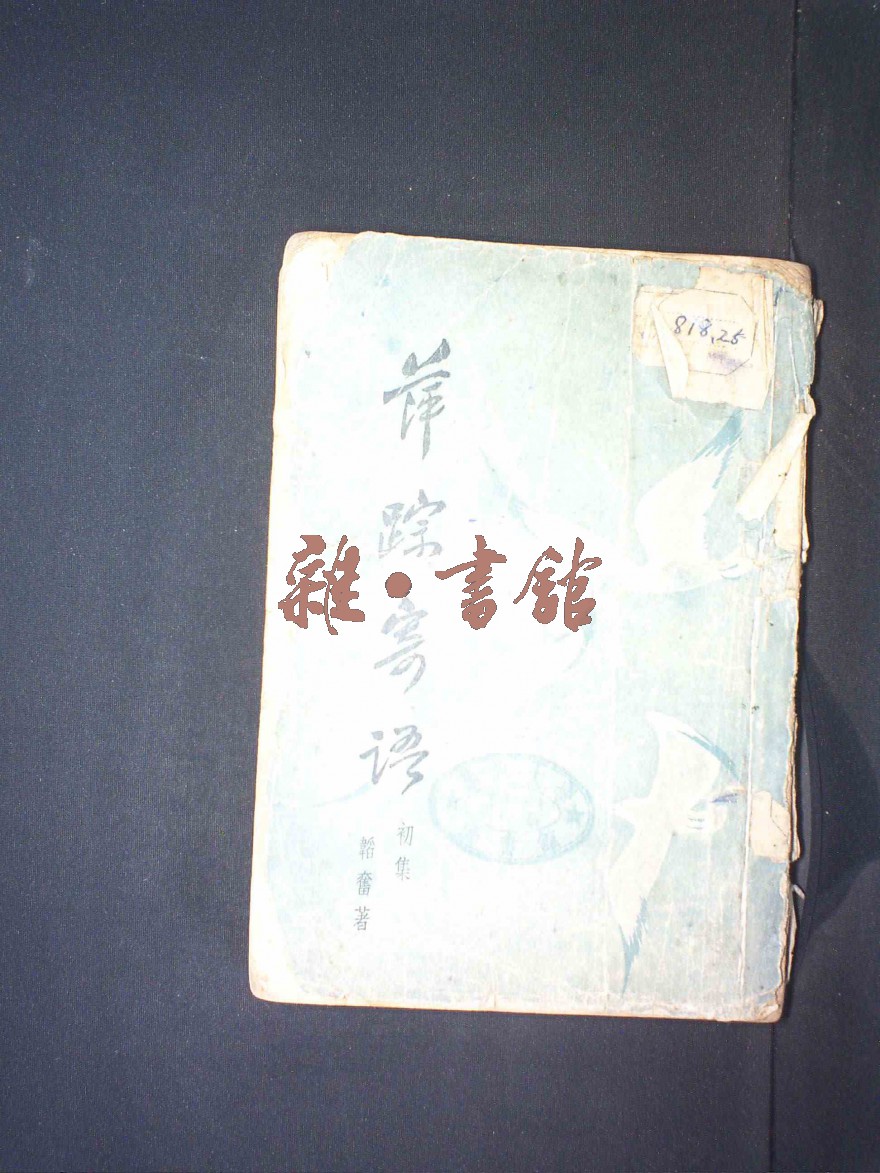 萍踪寄语
初集
韜奮著
818.25
雜·書館